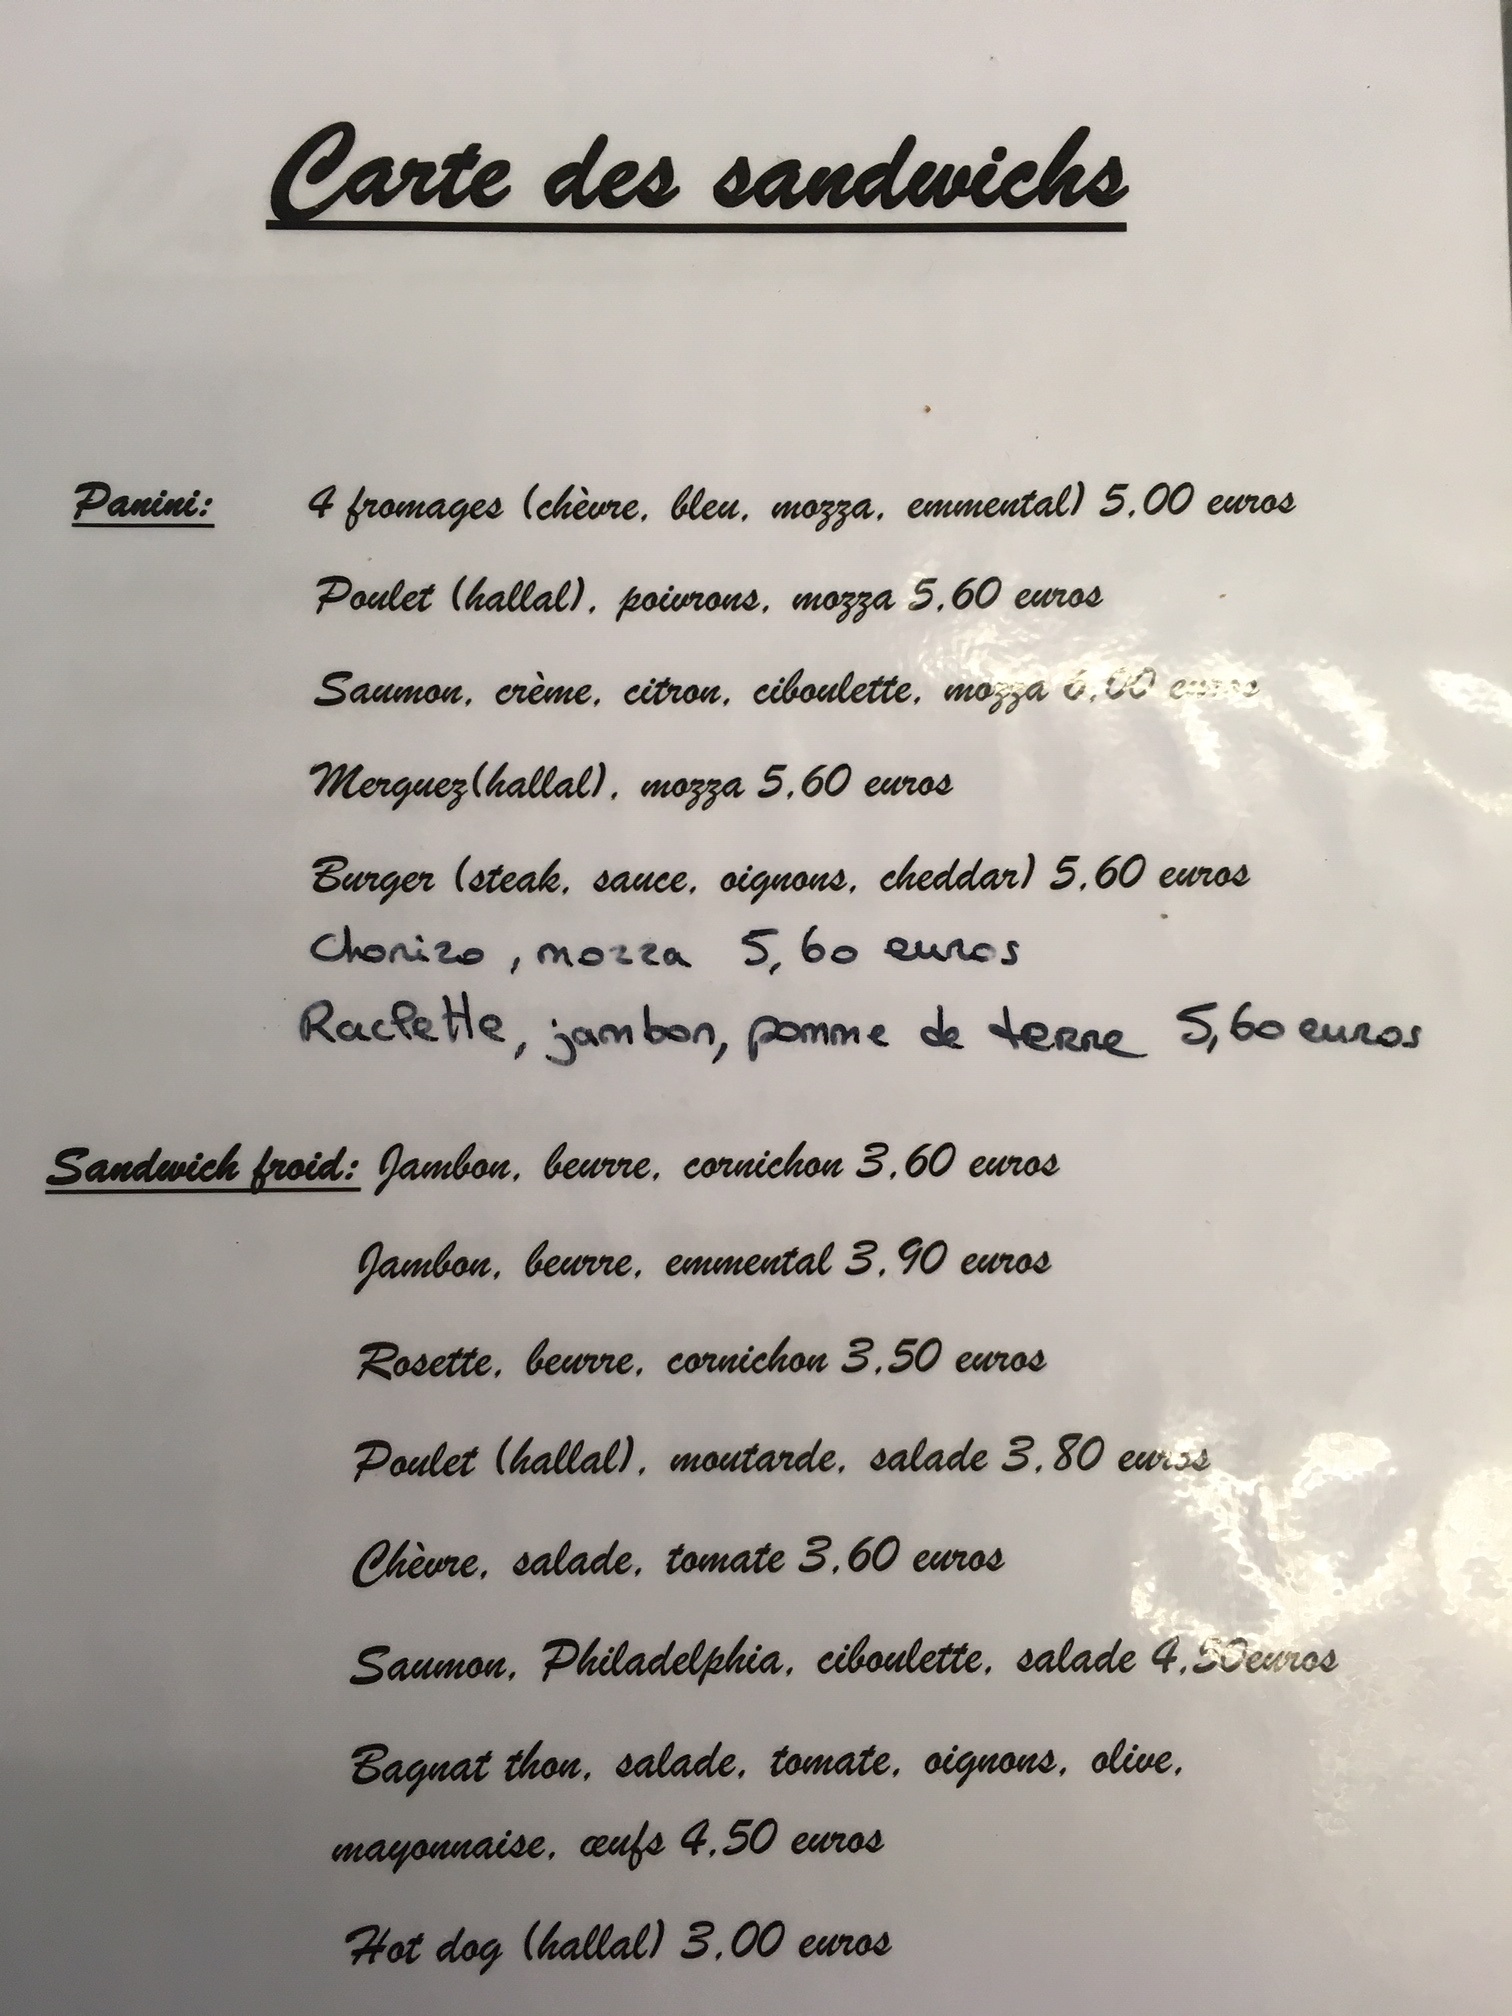 Carte des sandwichs
Panini: 4 fromages (chèvre, bleu, mozza, emmental) 5,00 euros
Poulet (hallal), poivrons, mozza 5,60 euros
Saumon, crème, citron, ciboulette, mozza 6,00 euros
Merguez(hallal), mozza 5,60 euros
Burger (steak, sauce, oignons, cheddar) 5,60 euros
Chorizo, mozza 5,60 euros
Raclette, jambon, pomme de terre 5,60 euros
Sandwich froid: Jambon, beurre, cornichon 3,60 euros
Jambon, beurre, emmental 3,90 euros
Rosette, beurre, cornichon 3,50 euros
Poulet (hallal), moutarde, salade 3,80 euros
Chèvre, salade, tomate 3,60 euros
Saumon, Philadelphia, ciboulette, salade 4,50euros
Bagnat thon, salade, tomate, oignons, olive,
mayonnaise, œufs 4,50 euros
Hot dog (hallal) 3,00 euros